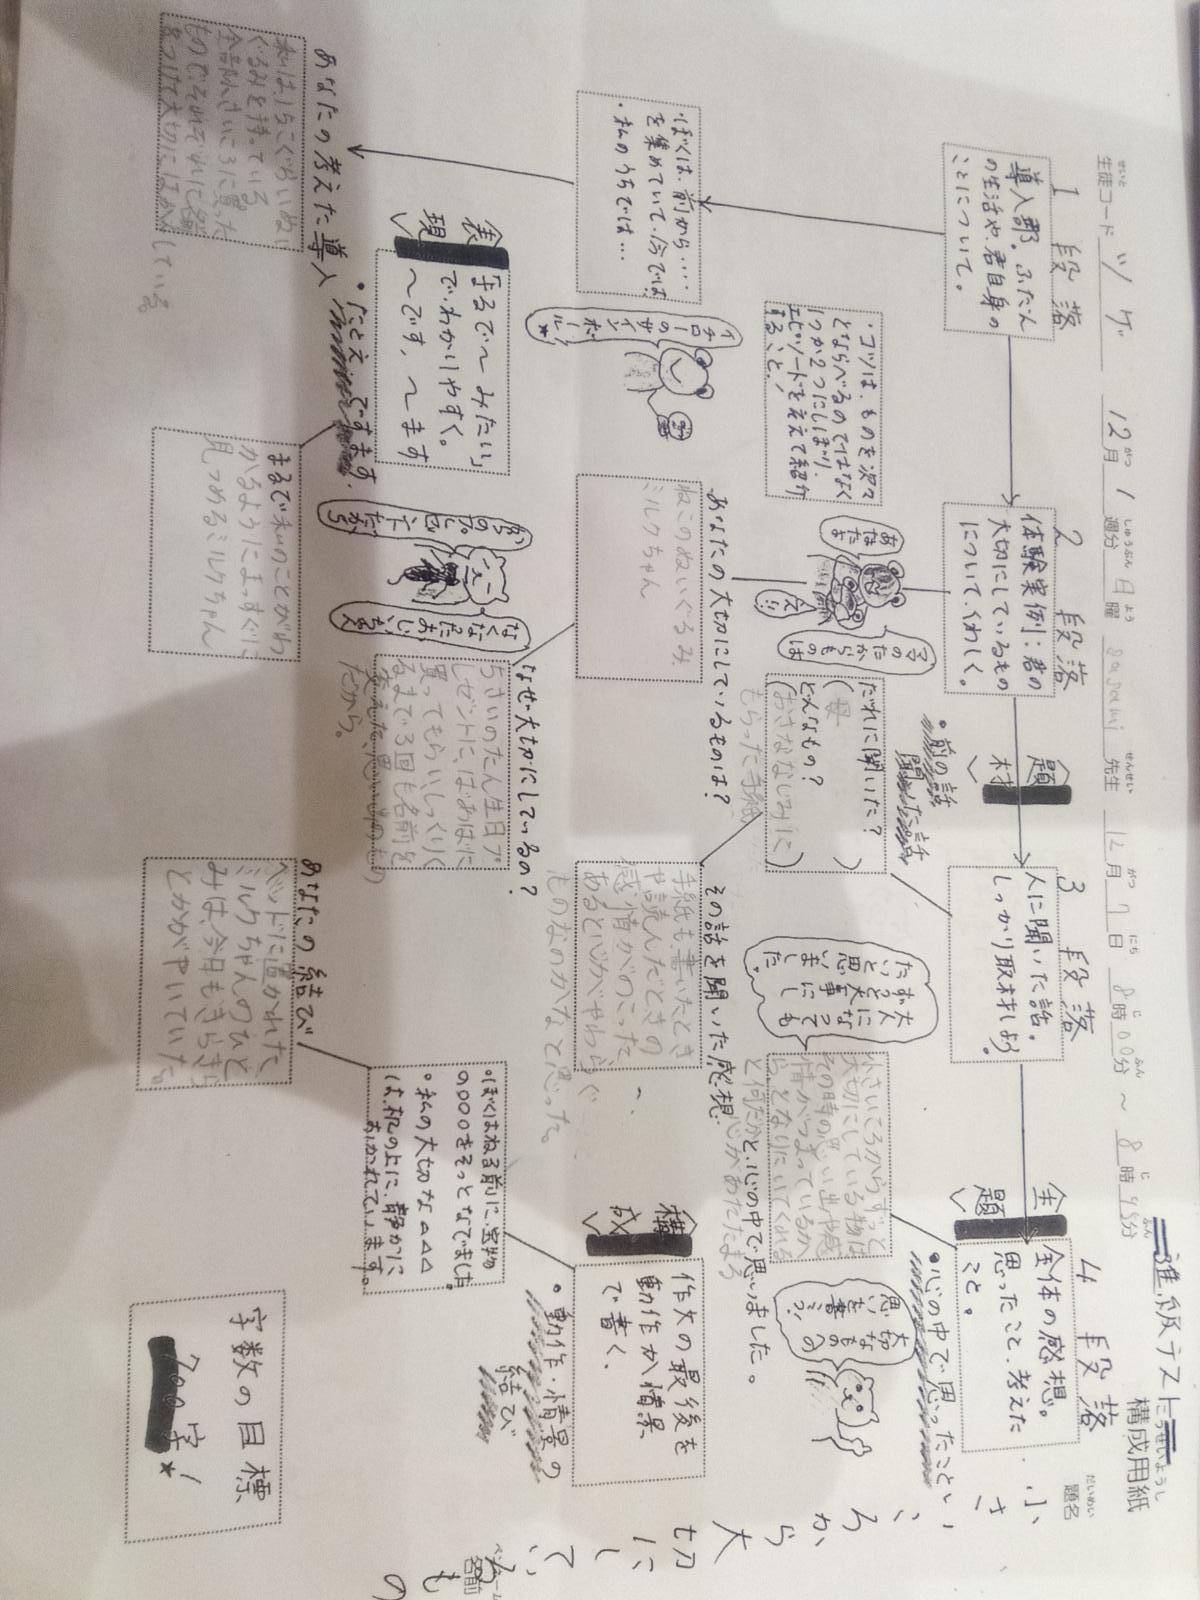 進級テスト
構成用紙
こうせいようし
生徒コード ツゲ 12月 1週分 日曜 sasami 先生 12月7日 8時00分 ～ 8時45分
題名
小さいころから大切にしているもの
1 段落
導入部。ふだん
の生活や、君自身の
ことについて。
・ぼくは、前から…
を集めていて、今では…
・私のうちでは…
・コツは、ものを次々
とならべるのではなく
1つか2つにしぼり、
エピソードをそえて紹介
すること!
イチローのサインボール!★
あなたの考えた導入
私は、15こぐらいぬい
ぐるみを持っている。
全部小さいころに買った
もので、それぞれに名前
をつけて大切にほかんしている。
表現
「まるで～みたい」
でわかりやすく。
～です、～ます
・たとえ
まるで私のことがわ
かるようにまっすぐに
見つめるミルクちゃん
2 段落
体験実例：君の
大切にしているもの
について、くわしく。
あなたの大切にしているものは?
ねこのぬいぐるみ
ミルクちゃん
なぜ大切にしているの?
5さいのたん生日プ
レゼントに、ばあばに
買ってもらい、しっくりく
るまで3回も名前を
変えた、思い出のもの
だから。
3 段落
人に聞いた話。
しっかり取材しよう。
題材
・前の話
聞いた話
だれに聞いた?
(母 )
どんなもの?
(おさななじみに
もらった手紙)
その話を聞いた感想
手紙も、書いたとき
や読んだときの
感情がのこった
あると心がやわらぐ
ものなのかなと思った。
4 段落
全体の感想。
思ったこと、考えた
こと。
主題
・心の中で思ったこと
小さいころからずっと
大切にしている物は
その時の思い出や感
情がつまっているか
ら、となりにいてくれる
と何だか心があたたまる
と、心の中で思いました。
大人になってもずっと大事にしたいと思いました
大切なものへの思いを書こう!
構成
作文の最後を
動作か情景
で書く。
・動作・情景の
結び
・ぼくはねる前に、宝物
の〇〇〇をそっとなでました。
・私の大切な△△△
は、机の上に、静かに
おかれています。
あなたの結び
ベッドに置かれた、
ミルクちゃんのひと
みは、今日もきらきら
とかがやいていた。
字数の目標
700字!★